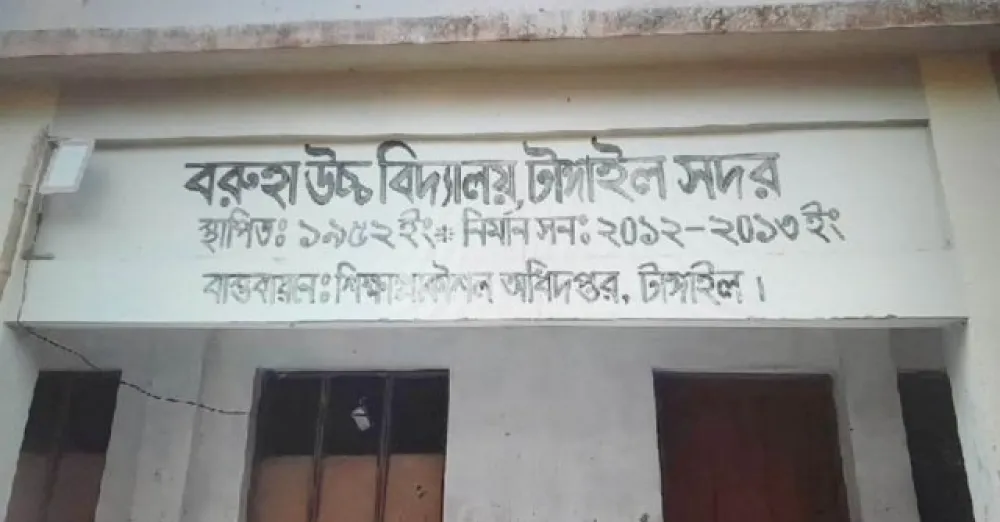 বরুহা উচ্চ বিদ্যালয়, টাঙ্গাইল সদর
স্থাপিতঃ ১৯৫২ ইং * নির্মান সনঃ ২০১২-২০১৩ ইং
বাস্তবায়নেঃ শিক্ষা প্রকৌশল অধিদপ্তর, টাঙ্গাইল।